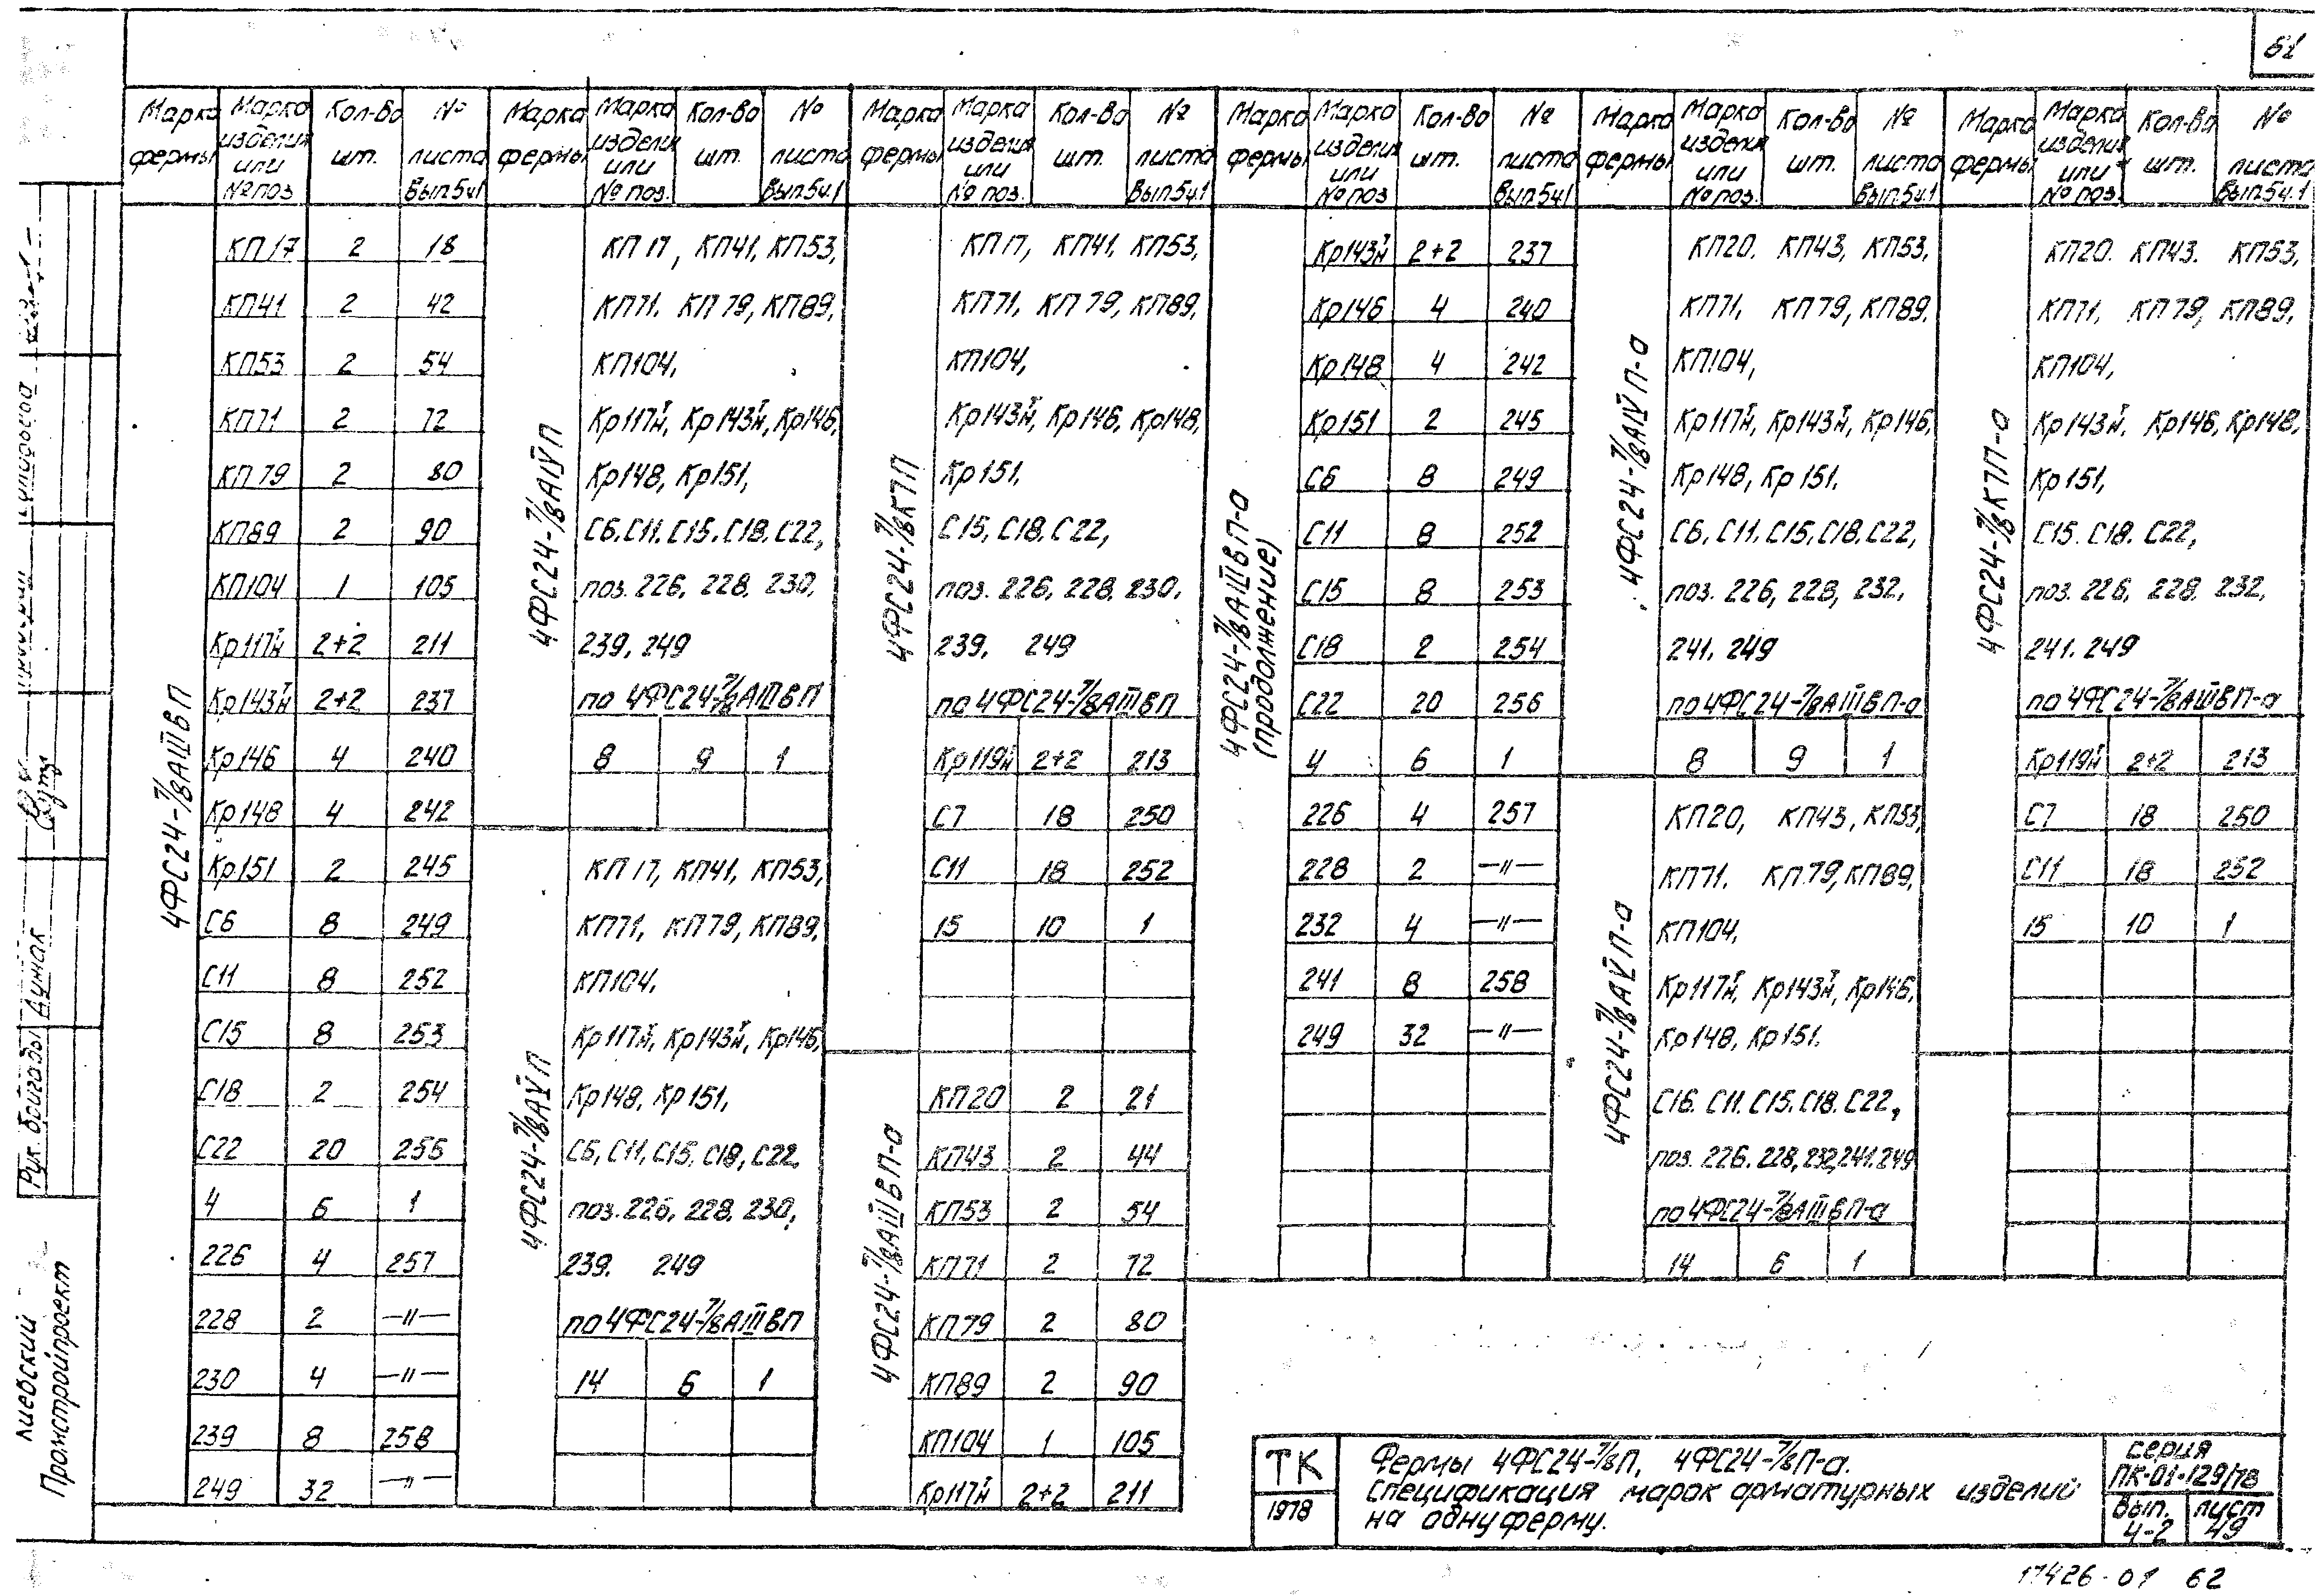 61
Марка фермы | Марка изделия или № поз | Кол-во шт. | № листа Вып.5ч.1
4ФС24-7/8АШВП
КП17 2 18
КП41 2 42
КП53 2 54
КП71 2 72
КП79 2 80
КП89 2 90
КП104 1 105
Кр117т/н 2+2 211
Кр143т/н 2+2 237
Кр146 4 240
Кр148 4 242
Кр151 2 245
С6 8 249
С11 8 252
С15 8 253
С18 2 254
С22 20 256
4 6 1
226 4 257
228 2 —"—
230 4 —"—
239 8 258
249 32 —"—
Марка фермы | Марка изделия или № поз. | Кол-во шт. | № листа Вып.5ч.1
4ФС24-7/8АIVП
КП17, КП41, КП53,
КП71, КП79, КП89,
КП104,
Кр117т/н, Кр143т/н, Кр146,
Кр148, Кр151,
С6, С11, С15, С18, С22,
поз. 226, 228, 230,
239, 249
по 4ФС24-7/8АШВП
8 9 1
4ФС24-7/8АVП
КП17, КП41, КП53,
КП71, КП79, КП89,
КП104,
Кр117т/н, Кр143т/н, Кр146,
Кр148, Кр151,
С6, С11, С15, С18, С22,
поз. 226, 228, 230,
239, 249
по 4ФС24-7/8АШВП
14 6 1
Марка фермы | Марка изделия или № поз. | Кол-во шт. | № листа Вып.5ч.1
4ФС24-7/8К7П
КП17, КП41, КП53,
КП71, КП79, КП89,
КП104,
Кр143т/н, Кр146, Кр148,
Кр151,
С15, С18, С22,
поз. 226, 228, 230,
239, 249
по 4ФС24-7/8АШВП
Кр119т/н 2+2 213
С7 18 250
С11 18 252
15 10 1
4ФС24-7/8АШВП-а
КП20 2 21
КП43 2 44
КП53 2 54
КП71 2 72
КП79 2 80
КП89 2 90
КП104 1 105
Кр117т/н 2+2 211
Марка фермы | Марка изделия или № поз | Кол-во шт. | № листа Вып.5ч1
4ФС24-7/8АШВП-а
(продолжение)
Кр143т/н 2+2 237
Кр146 4 240
Кр148 4 242
Кр151 2 245
С6 8 249
С11 8 252
С15 8 253
С18 2 254
С22 20 256
4 6 1
226 4 257
228 2 —"—
232 4 —"—
241 8 258
249 32 —"—
Марка фермы | Марка изделия или № поз. | Кол-во шт. | № листа Вып.5ч.1
4ФС24-7/8АIVП-а
КП20, КП43, КП53,
КП71, КП79, КП89,
КП104,
Кр117т/н, Кр143т/н, Кр146,
Кр148, Кр151,
С6, С11, С15, С18, С22,
поз. 226, 228, 232,
241, 249
по 4ФС24-7/8АШВП-а
8 9 1
4ФС24-7/8АVП-а
КП20, КП43, КП53,
КП71, КП79, КП89,
КП104,
Кр117т/н, Кр143т/н, Кр146,
Кр148, Кр151,
С16, С11, С15, С18, С22,
поз. 226, 228, 232, 241, 249
по 4ФС24-7/8АШВП-а
14 6 1
Марка фермы | Марка изделия или № поз. | Кол-во шт. | № листа Вып.5ч.1
4ФС24-7/8К7П-а
КП20, КП43, КП53,
КП71, КП79, КП89,
КП104,
Кр143т/н, Кр146, Кр148,
Кр151,
С15, С18, С22,
поз. 226, 228, 232,
241, 249
по 4ФС24-7/8АШВП-а
Кр119т/н 2+2 213
С7 18 250
С11 18 252
15 10 1
Рук. бригады Дужак
Киевский
Промстройпроект
ТК
1978
Фермы 4ФС24-7/8П, 4ФС24-7/8П-а.
Спецификация марок арматурных изделий
на одну ферму.
серия
ПК-01-129/78
Вып. 4-2
лист 49
17426-01 62